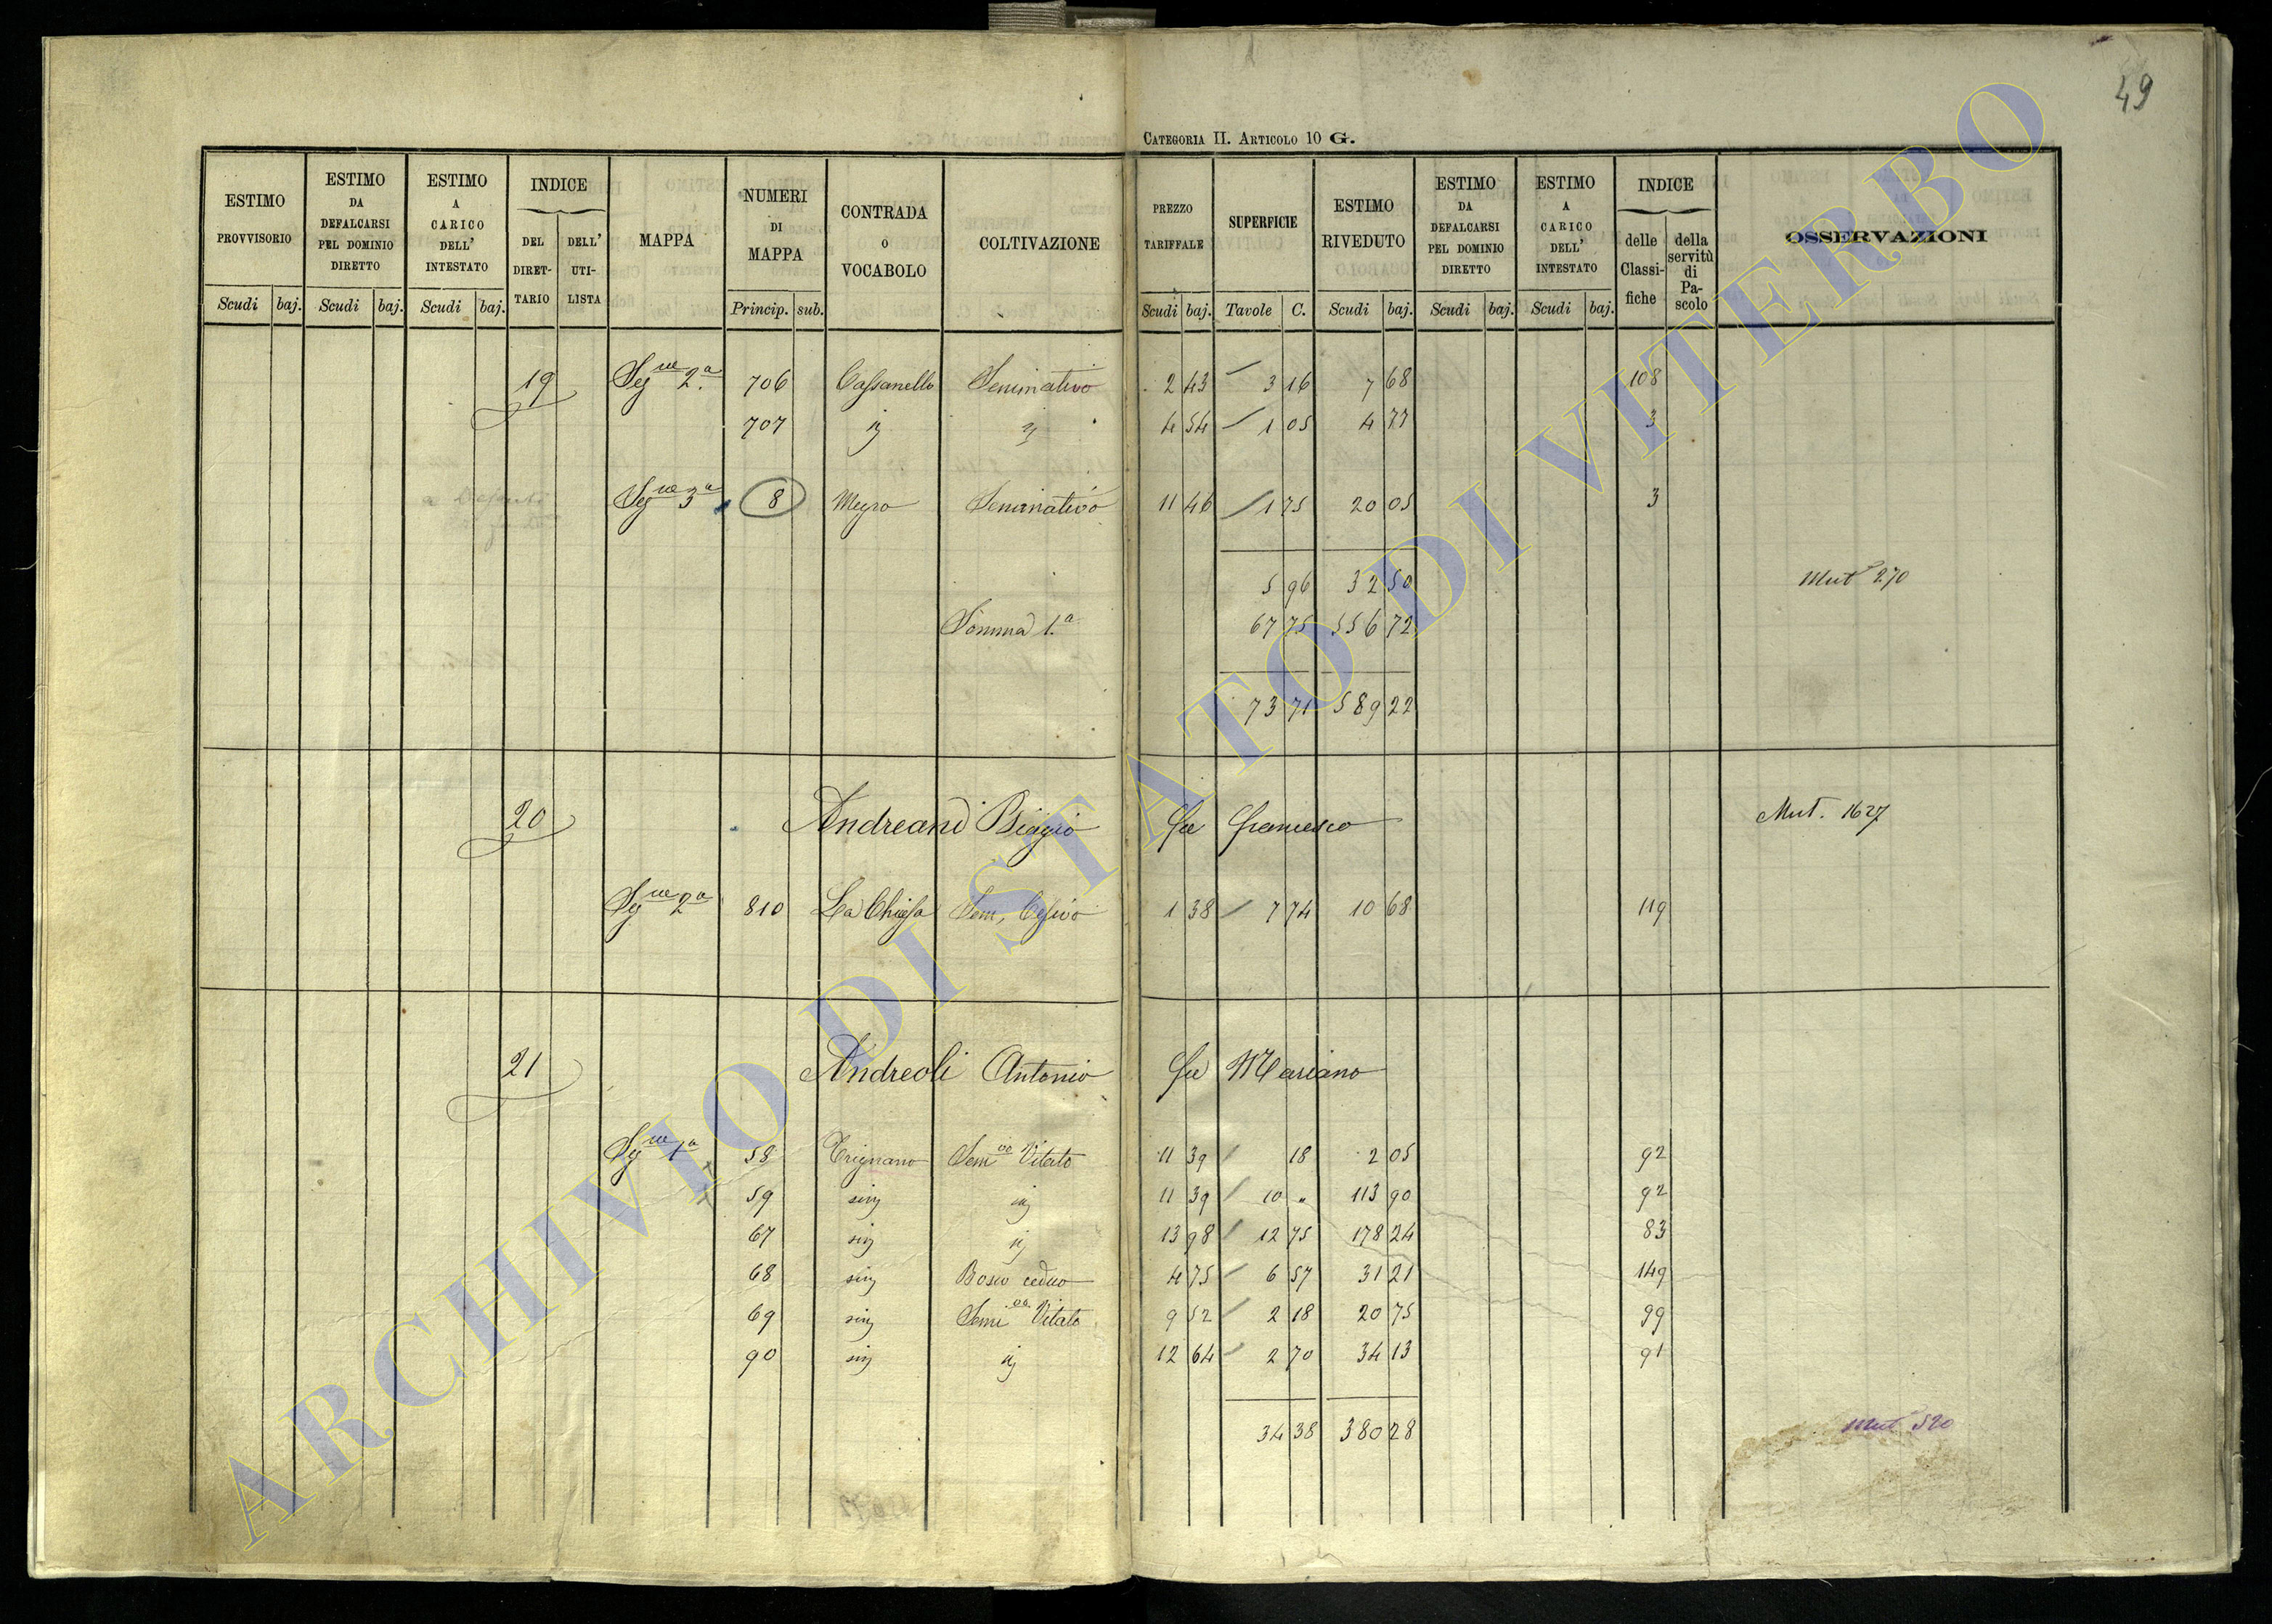 49
CATEGORIA II. ARTICOLO 10 G.
ESTIMO PROVVISORIO Scudi baj. ESTIMO DA DEFALCARSI PEL DOMINIO DIRETTO Scudi baj. ESTIMO A CARICO DELL' INTESTATO Scudi baj. INDICE DEL DIRETTARIO DELL' UTILISTA MAPPA NUMERI DI MAPPA Princip. sub. CONTRADA O VOCABOLO COLTIVAZIONE PREZZO TARIFFALE Scudi baj. SUPERFICIE Tavole C. ESTIMO RIVEDUTO Scudi baj. ESTIMO DA DEFALCARSI PEL DOMINIO DIRETTO Scudi baj. ESTIMO A CARICO DELL' INTESTATO Scudi baj. INDICE delle Classifiche della servitù di Pascolo OSSERVAZIONI
19 Seg.ne 2.a 706 Cassanello Seminativo 2 43 3 16 7 68 108
707 ij ij 4 54 1 05 4 77 3
Seg.ne 3a 8 Megro Seminativo 11 46 1 75 20 05 3
5 96 32 50 Mut 270
Somma 1.a 67 75 556 72
73 71 589 22
20 Andreani Biagio fu Francesco Mut. 1627
Seg.ne 2a 810 La Chiesa Sem. Cesivo 1 38 7 74 10 68 119
21 Andreoli Antonio fu Mariano
Seg.ne 1a 58 Trignano Sem.vo Vitato 11 39 18 2 05 92
59 sinj ij 11 39 10 " 113 90 92
67 sinj ij 13 98 12 75 178 24 83
68 sinj Bosco ceduo 4 75 6 57 31 21 149
69 sinj Semi.vo Vitato 9 52 2 18 20 75 99
90 sinj ij 12 64 2 70 34 13 91
34 38 380 28
Mut 520
ARCHIVIO DI STATO DI VITERBO